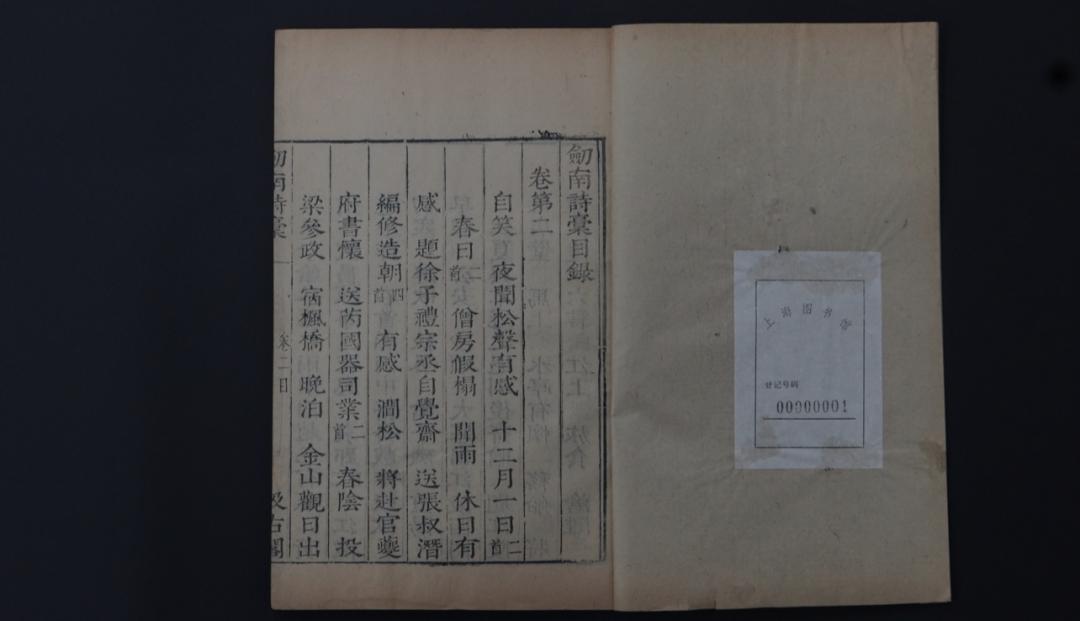 上海图书馆
登记号码
00000001
劒南詩槀目録
卷第二
自笑 夏夜聞松聲有感 十二月一日二首
春日二首 僧房假榻 聞雨 休日有
感 題徐子禮宗丞自覺齋 送張叔潛
編修造朝四首 有感 澗松 將赴官夔
府書懷 送芮國器司業二首 春陰 投
梁參政 宿楓橋 晚泊 金山觀日出
劒南詩槀 卷二目 汲古閣